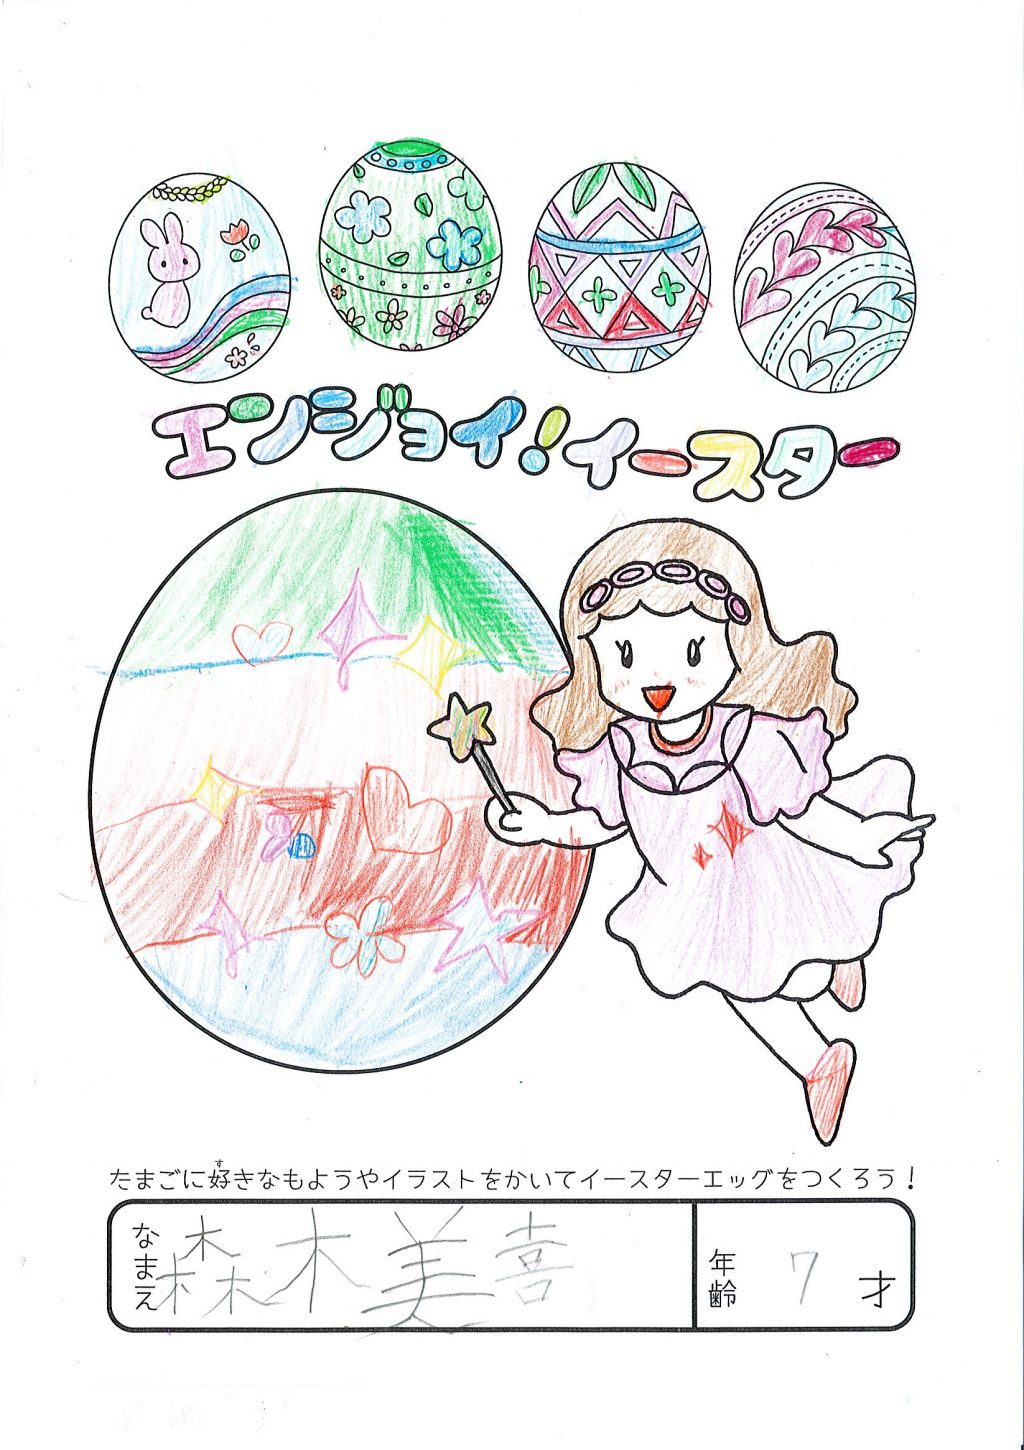 エンジョイ!イースター
たまごに好きなもようやイラストをかいてイースターエッグをつくろう!
す
なまえ 森木美喜 年齢 7 才